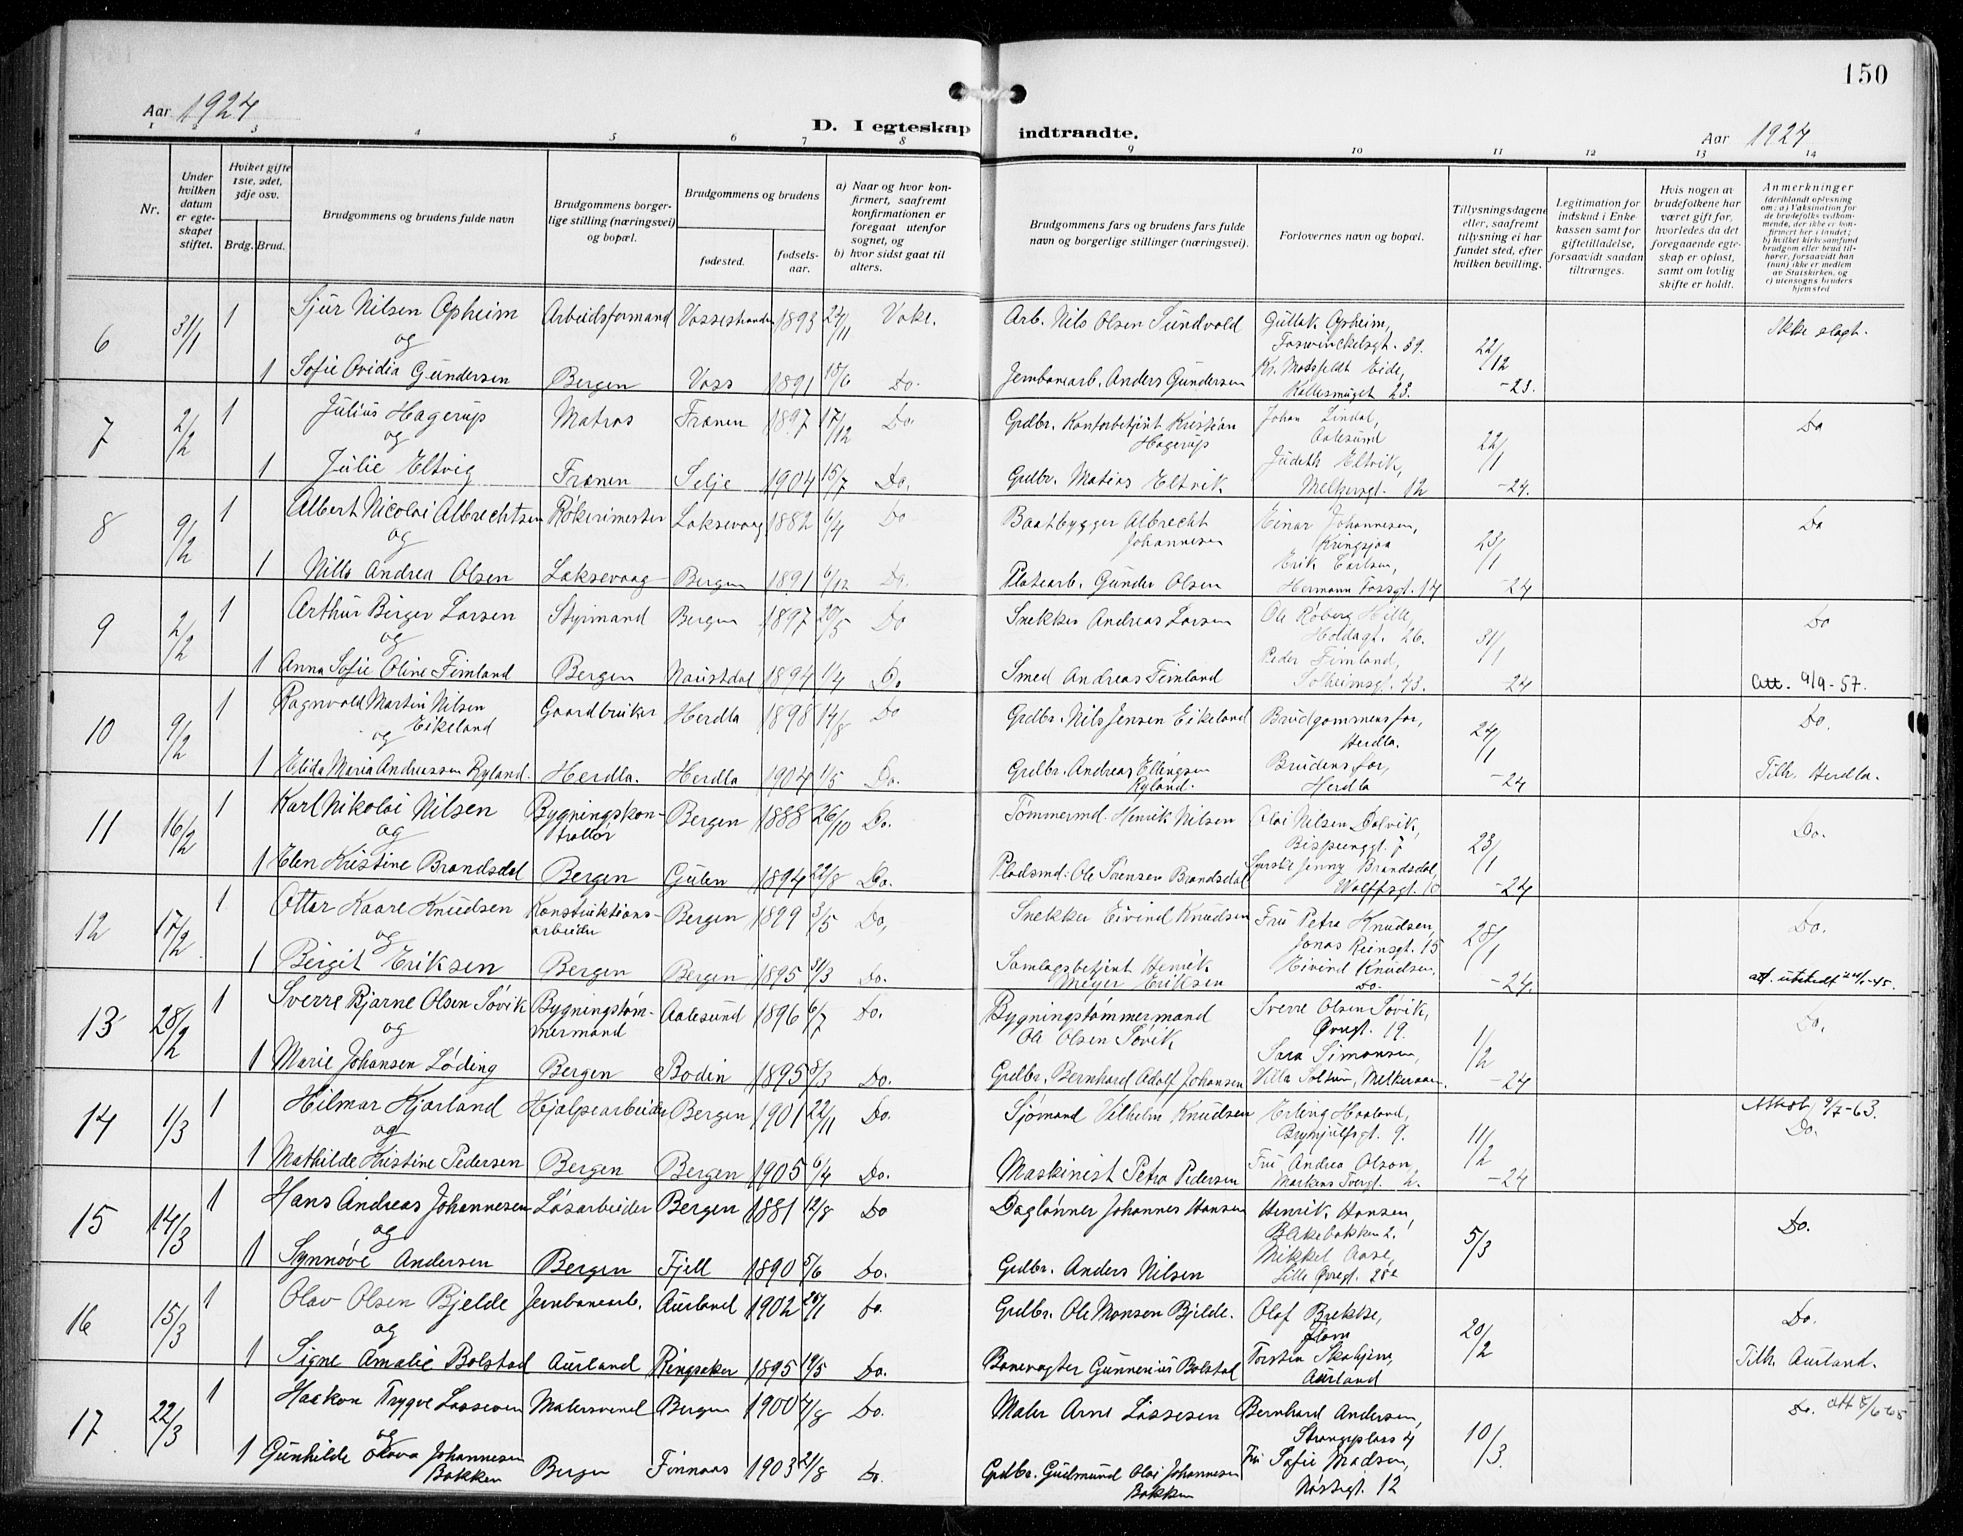 150
Aar 1924
D. I egteskap indtraadte.
Aar 1924
1 2 3 4 5 6 7 8 9 10 11 12 13 14
Nr.
Under hvilken datum er egteskapet stiftet.
Hviket gifte 1ste, 2det, 3dje osv.
Brdg. Brud.
Brudgommens og brudens fulde navn
Brudgommens borgerlige stilling (næringsvei) og bopæl.
Brudgommens og brudens
fødested.
fødselsaar.
a) Naar og hvor konfirmert, saafremt konfirmationen er foregaat utenfor sognet, og
b) hvor sidst gaat til alters.
Brudgommens fars og brudens fars fulde navn og borgerlige stillinger (næringsvei).
Forlovernes navn og bopæl.
Tillysningsdagene eller, saafremt tillysning ei har fundet sted, efter hvilken bevilling.
Legitimation for indskud i Enkekassen samt for giftetilladelse, forsaavidt saadan tiltrænges.
Hvis nogen av brudefolkene har været gift før, hvorledes da det foregaaende egteskap er opløst, samt om lovlig skifte er holdt.
Anmerkninger (deriblandt oplysning om: a) Vaksination for de brudefolks vedkommende, der ikke er konfirmert her i landet; b) hvilket kirkesamfund brudgom eller brud tilhører, forsaavidt han (hun) ikke er medlem av Statskirken, og c) utensogns bruders hjemsted
6 31/1 1 Sjur Nilsen Opheim Arbeidsformand Vossestranden 1893 Vake. Arb. Nils Olsen Sundvold Gullak Opheim, Ikke slegt.
og 39. 22/12
1 Sofie Ovidia Gundersen Bergen Voss 1891 Do. Jernbanearb. Anders Gundersen Kr. Motzfeldt Eide, 23. -23.
7 2/2 1 Julius Hagerup Matros Frænen 1897 17/12 Do. Grdbr. Kristian Hagerup Johan Lindal, Aalesund 22/1 Do
og
1 Julie Eltvig Frænen Selje 1904 15/7 Do. Grdbr. Matias Eltvik Judith Eltvik, Melkersgt. 12 -24.
8 9/2 1 Albert Nicolai Albrechtsen Røkerimester Laksevaag 1882 6/4 Do Baatbygger Albrecht Johannesen Einar Johannesen, Kringsjaa 23/1 Do
og
1 Nills Andrea Olsen Laksevaag Bergen 1891 6/12 Do. Platearb. Gunder Olsen Erik Carlsen, Hermann Fossgt. 14 -24
9 2/2 1 Arthur Birger Larsen Styrmand Bergen 1897 20/5 Do Snekker Andreas Larsen Ole Røberg Hille, 26. 31/1 Do
og
1 Anna Sofie Oline Fimland Bergen Naustdal 1894 1/4 Do Smed Andreas Fimland Peder Fimland, Solheimsgt. 43. -24 Att. 9/9-57.
10 9/2 1 Ragnvald Martin Nilsen Eikeland Gaardbruker Herdla 1898 14/8 Do Grdbr. Nils Jensen Eikeland Brudgommens far, Herdla. 24/1 Do.
og
1 Elida Maria Andreassen Ryland. Herdla. Herdla 1904 1/5 Do. Grdbr. Andreas Ellingsen Ryland. Brudens far, Herdla -24 Tilh. Herdla.
11 16/2 1 Karl Nikolai Nilsen Bygningskontrollør Bergen 1888 26/10 Do. Tømmermd. Henrik Nilsen Olai Nilsen Dalvik, 23/1 Do.
og
1 Elen Kristine Brandsdal Bergen Gulen 1894 22/8 Do. Pladsmd. Ole Sørensen Brandsdal Jenny Brandsdal, Wolffsgt. 10 -24
12 17/2 1 Ottar Kaare Knudsen Konstruktionsarbeider Bergen 1899 3/5 Do, Snekker Eivind Knudsen Fru Petra Knudsen, Jonas Reinsgt. 15 28/1 Do.
og
1 Bergit Eriksen Bergen Bergen 1895 31/3 Do. Samlagsbetjent Henrik Meyer Eriksen Eivind Knudsen, Do. -24.
13 28/2 1 Sverre Bjarne Olsen Søvik Bygningstømmermand Aalesund 1896 6/7 Do. Bygningstømmermand Ole Olsen Søvik Sverre Olsen Søvik, Øvregt. 19. 1/2 Do.
og
1 Marie Johansen Løding Bergen Bodin 1895 8/3 Do. Grdbr. Bernhard Adolf Johansen Sara Simonsen, Villa -24
14 1/3 1 Hilmar Kjærland Hjælpearbeider Bergen 1901 22/11 Do. Sjømand Vilhelm Knudsen Erling Haaland, Brynjulfsgt. 9. 11/2 9/7-63. Do.
og
1 Mathilde Kristine Pedersen Bergen Bergen 1905 6/4 Do. Maskinist Petra Pedersen Fru Andrea Olson, -24
15 14/3 1 Hans Andreas Johannesen Løsarbeider Bergen 1881 12/8 Do Daglønner Johannes Hansen Henrik Hansen, Blekebakken 2. 5/3 Do.
og
1 Synnøve Andersen Bergen Fjell 1890 5/6 Do. Grdbr. Anders Nilsen Mikkel Aase, Lille Øvregt.
16 15/3 1 Olav Olsen Bjelde Jernbanearb. Aurland 1902 20/1 Do. Grdbr. Ole Monsen Bjelde. Olaf Brekke, Flom 20/2 Do.
og
1 Signe Amalie Bolstad Aurland Ringsaker 1895 19/5 Do. Banevogter Gunnerius Bolstad Torstein Skahjem, Aurland Tilh. Aurland.
17 22/3 1 Haakon Trygve Lassesen Malersvend Bergen 1900 4/8 Do. Maler Arne Lassesen Bernhard Andersen, Strangeplass 4 10/3. Do. att 8/6-65
og
1 Gunhilde Olava Johannesen Bakken Bergen Finnaas 1903 21/8 Do. Grdbr. Gudmund Olai Johannesen Bakken Fru Sofie Madsen, Nøstegt. 12